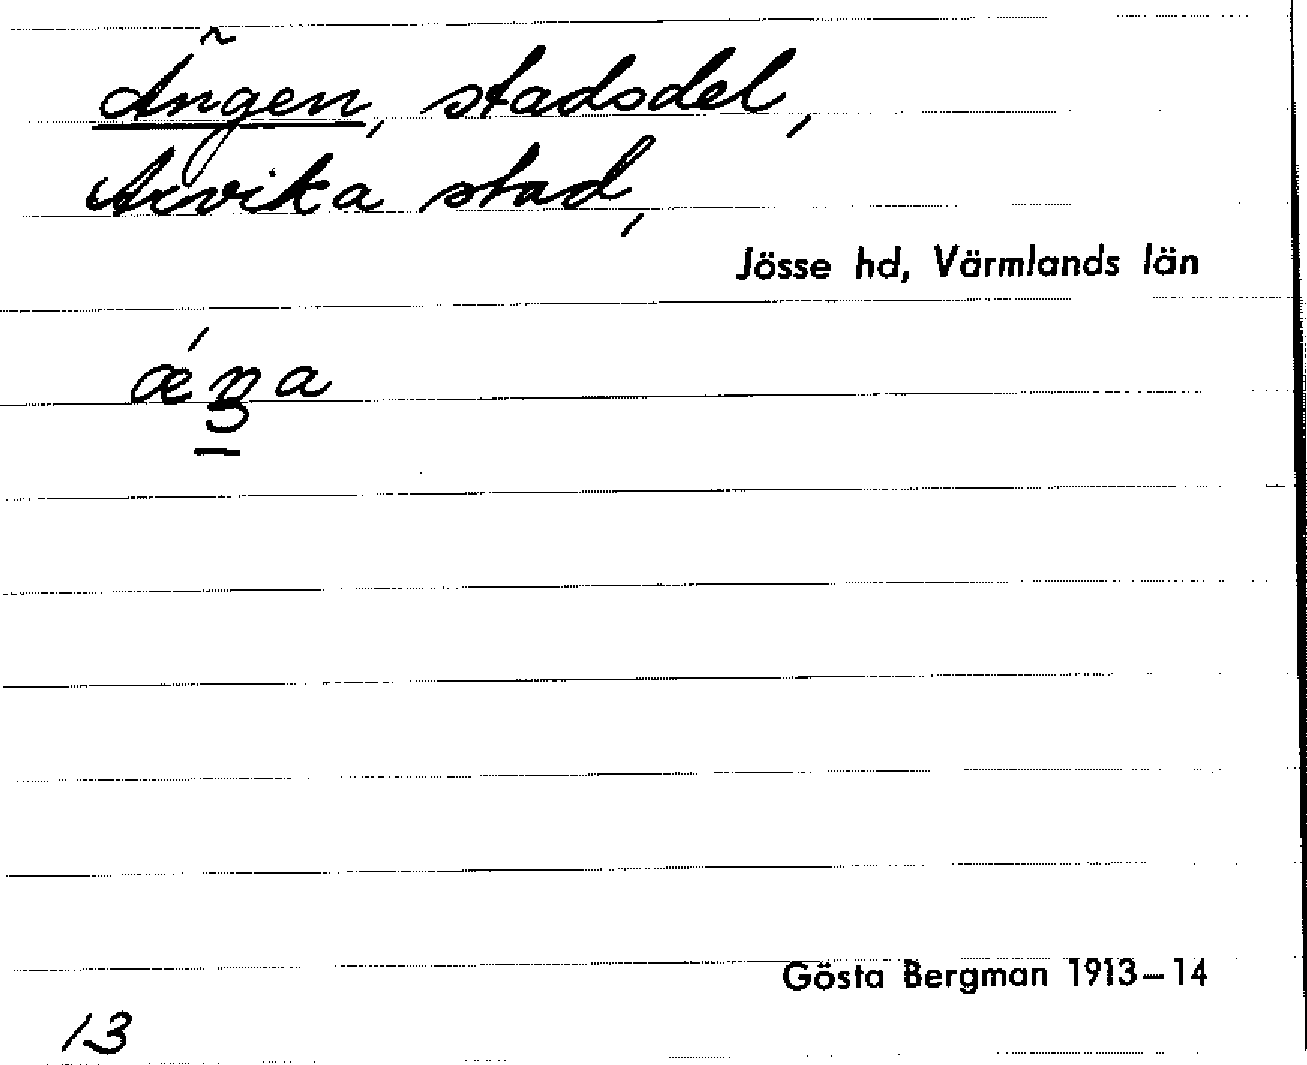 Ängen, stadsdel,
Arvika stad,
Jösse hd, Värmlands län
Gösta Bergman 1913–14
13